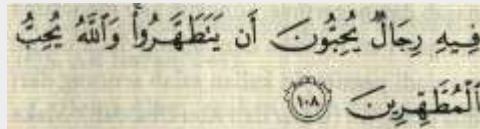 فِيهِ رِجَالٌ يُحِبُّونَ أَن يَتَطَهَّرُواْ وَٱللَّهُ يُحِبُّ
ٱلْمُطَّهِّرِينَ ١٠٨